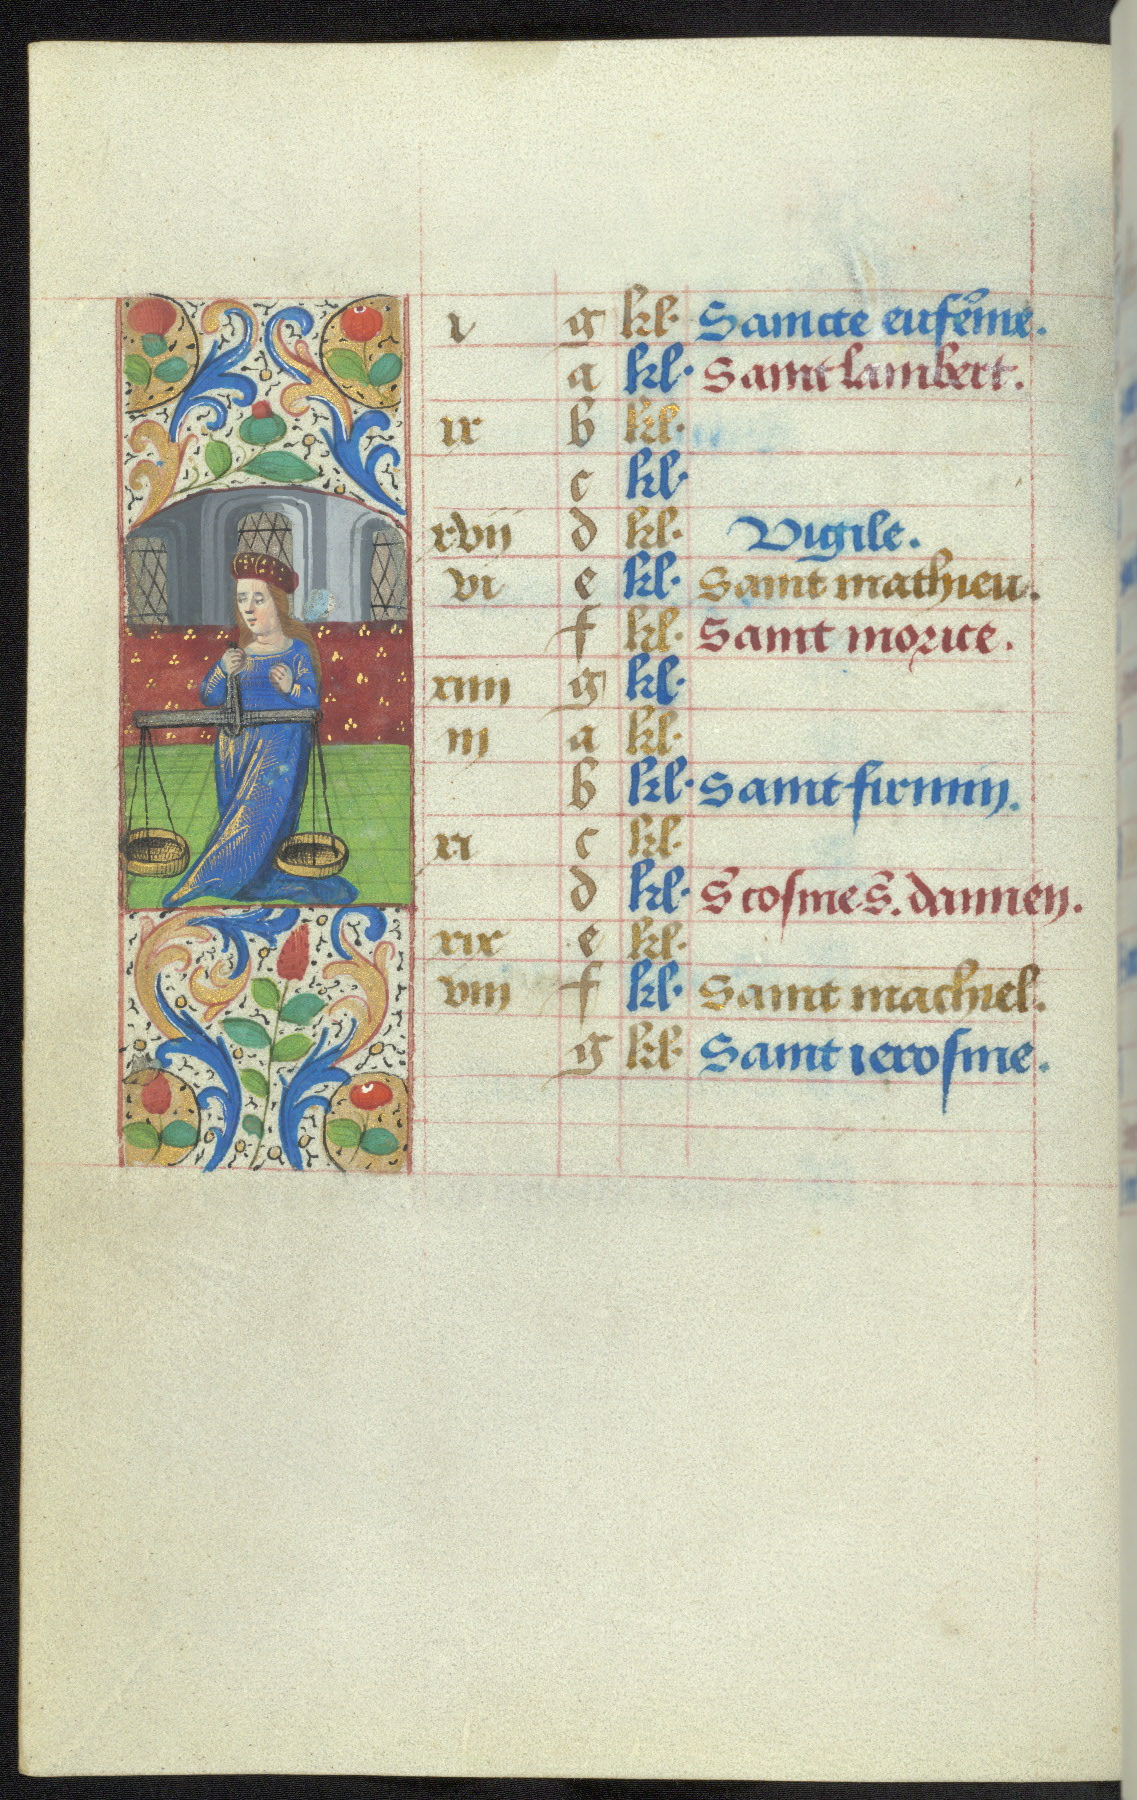 i g kl. Saincte eufẽme.
a kl. Saint lambert.
ix b kl.
c kl.
xvii d kl. Vigile.
vi e kl. Saint mathieu.
f kl. Saint morice.
xiiii g kl.
iii a kl.
b kl. Saint firmin.
xi c kl.
d kl. S cosme S. damien.
xix e kl.
viii f kl. Saint machiel.
g kl. Saint ierosme.